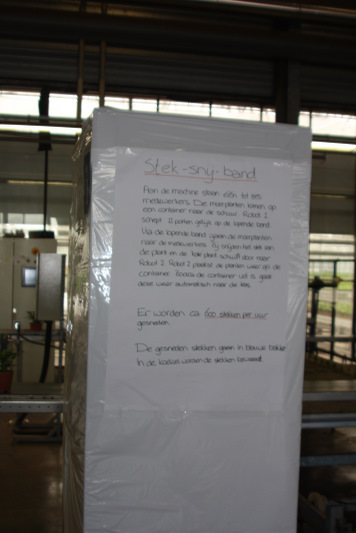 Stek-snij-band
Aan de machine staan één tot zes
medewerkers. Die moerplanten komen op
een container naar de schuur. Robot 1
schept 11 potten gelijk op de lopende band.
Via de lopende band gaan de moerplanten
naar de medewerkers. Zij snijden het stek van
de plant en de kale plant schuift door naar
Robot 2. Robot 2 plaatst de planten weer op de
container. Zodra de container vol is gaat
deze weer automatisch naar de kas.
Er worden ca 600 stekken per uur
gesneden.
De gesneden stekken gaan in blauwe bakken
In de koelcel worden de stekken bewaard.